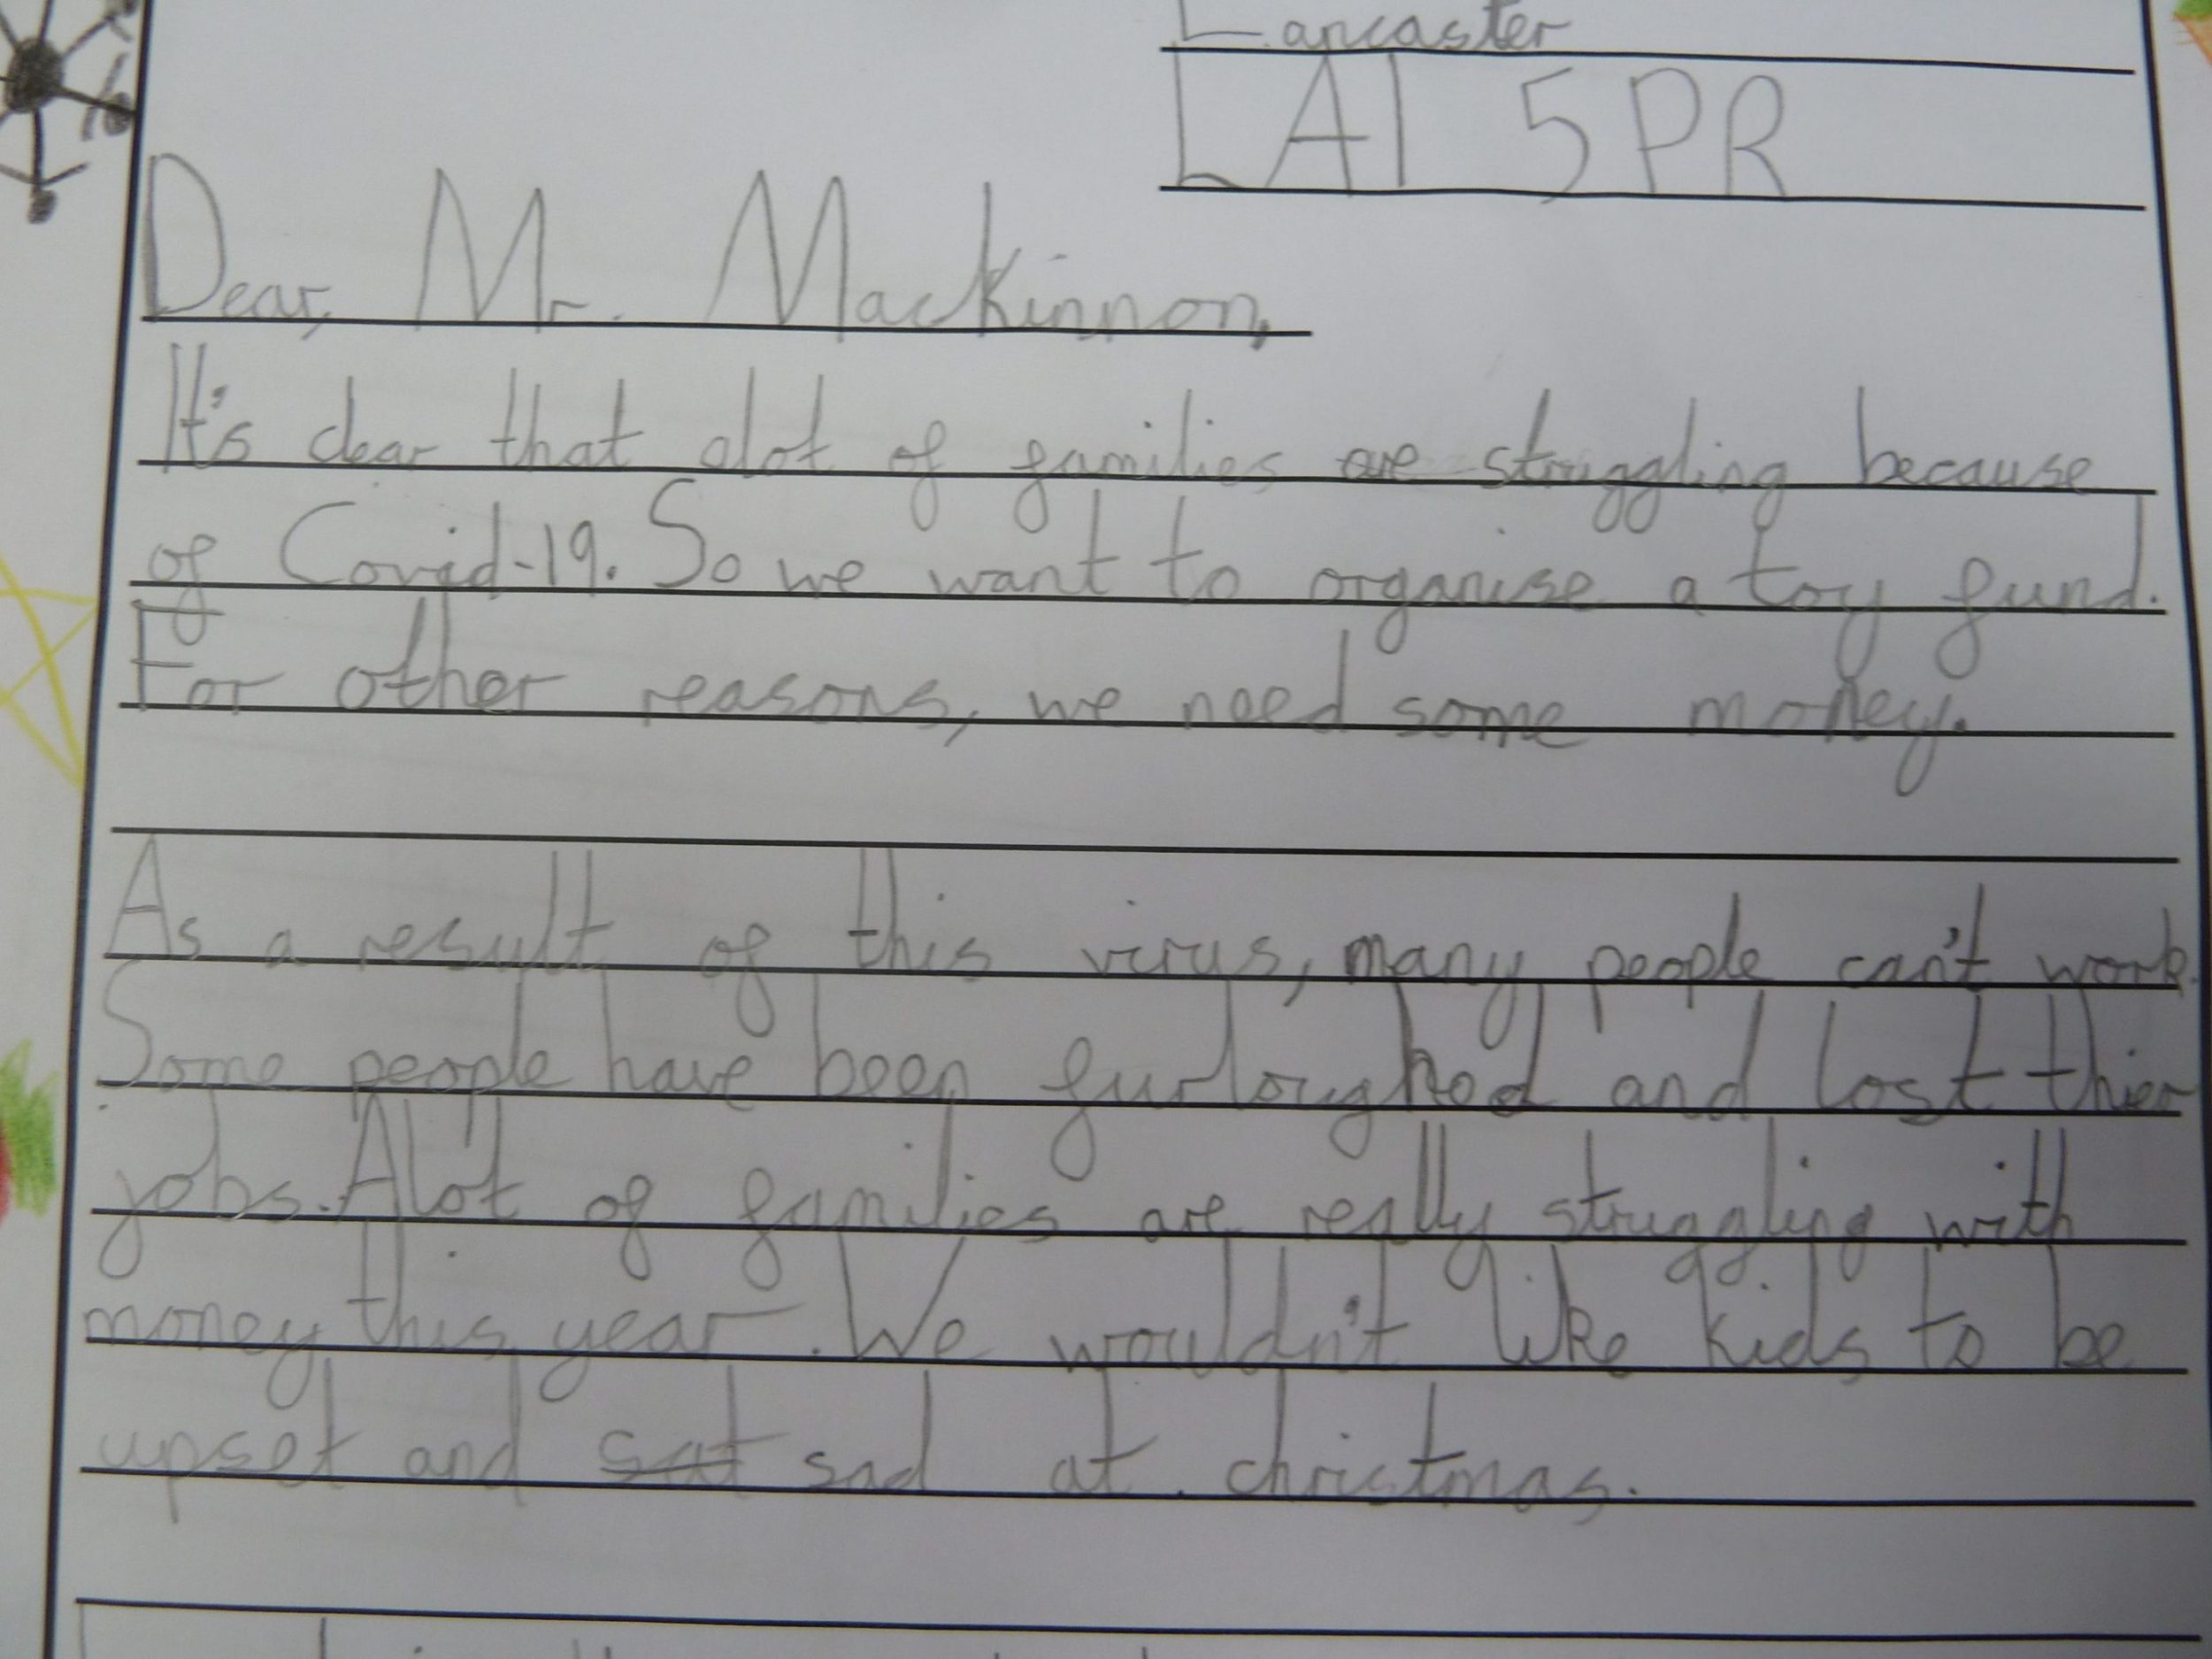 Lancaster
LA1 5PR
Dear, Mr. Mackinnon,
It's clear that alot of families are struggling because
of Covid-19. So we want to organise a toy fund.
For other reasons, we need some money.
As a result of this virus, many people can't work.
Some people have been furloughed and lost thier
jobs. Alot of families are really struggling with
money this year. We wouldn't like kids to be
upset and sat sad at christmas.